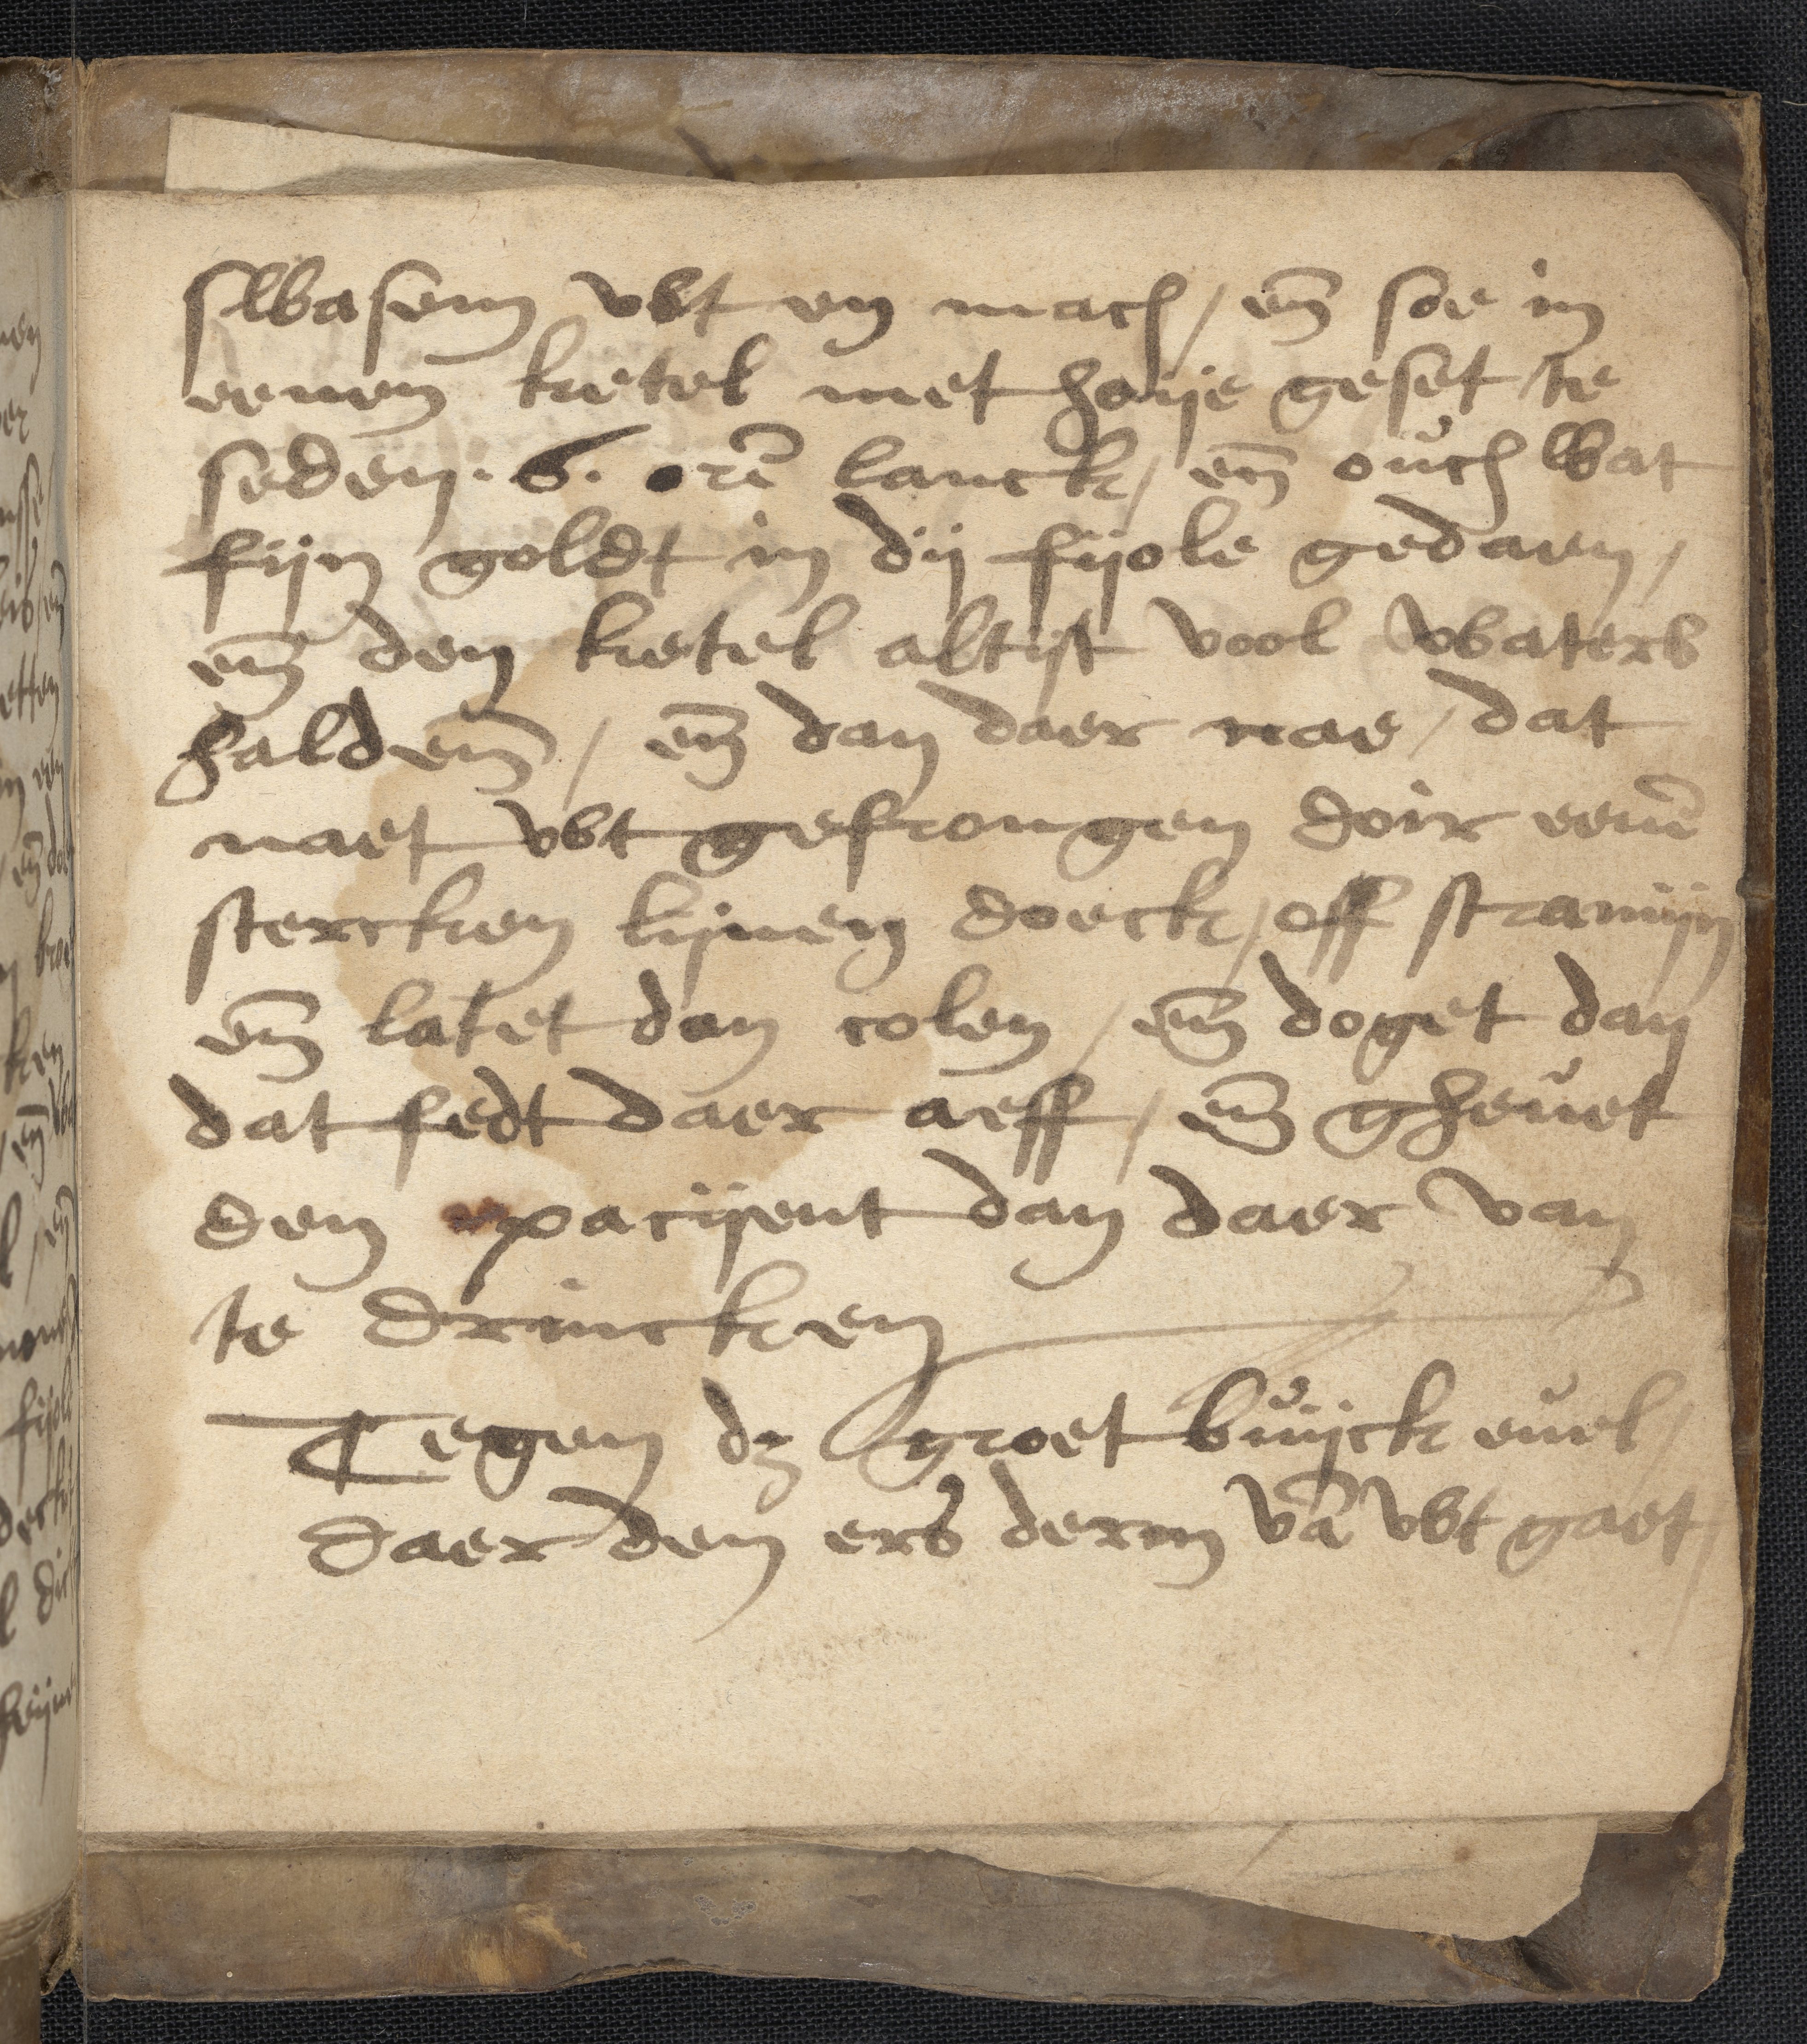 swasem vwt en mach / en̄ soe in
eenen ketel met hoije geset te
seden . 6 . ore̅ lanck / en̄ oŭch wat
fijn goldt in dij fijole gedaen /
en̄ den ketel altijt vool waters
halden̄ / en̄ dan daer nae / dat
naet vwt gefrongen doir eene̅
stercken lijnen doeck / off stramijn
en̄ latet dan colen / en̄ doget dan
dat fedt daer aeff / en̄ gheŭet
den pacijent dan daer van
te drincken
Tegen dz groet bŭijck eŭel /
daer den ers derm va̅ vwt gaet /